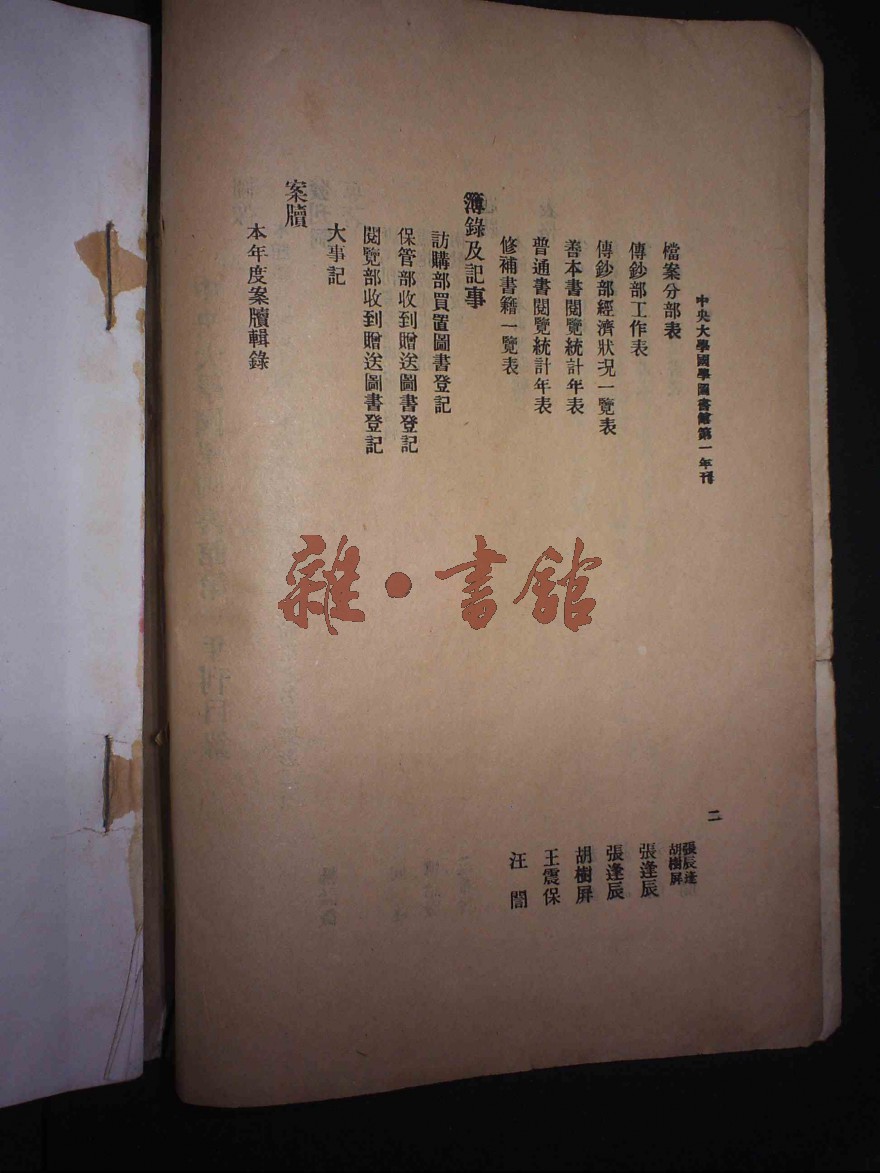 中央大學國學圖書館第一年刊
二
檔案分部表
張辰逢
胡樹屏
傳鈔部工作表
張逢辰
傳鈔部經濟狀况一覽表
張逢辰
善本書閱覽統計年表
胡樹屏
普通書閱覽統計年表
王震保
修補書籍一覽表
汪誾
簿錄及記事
訪購部買置圖書登記
保管部收到贈送圖書登記
閱覽部收到贈送圖書登記
大事記
案牘
本年度案牘輯錄
雜·書館